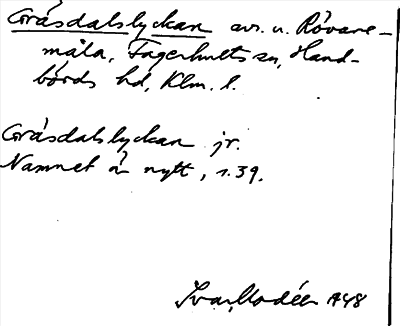 Gräsdalslyckan avs. u. Rövare-
måla, Fagerhults sn, Hand-
börds hd, Klm. l.
Gräsdalslyckan jr.
Namnet är nytt, r. 39.
Ivar Modéer 1948